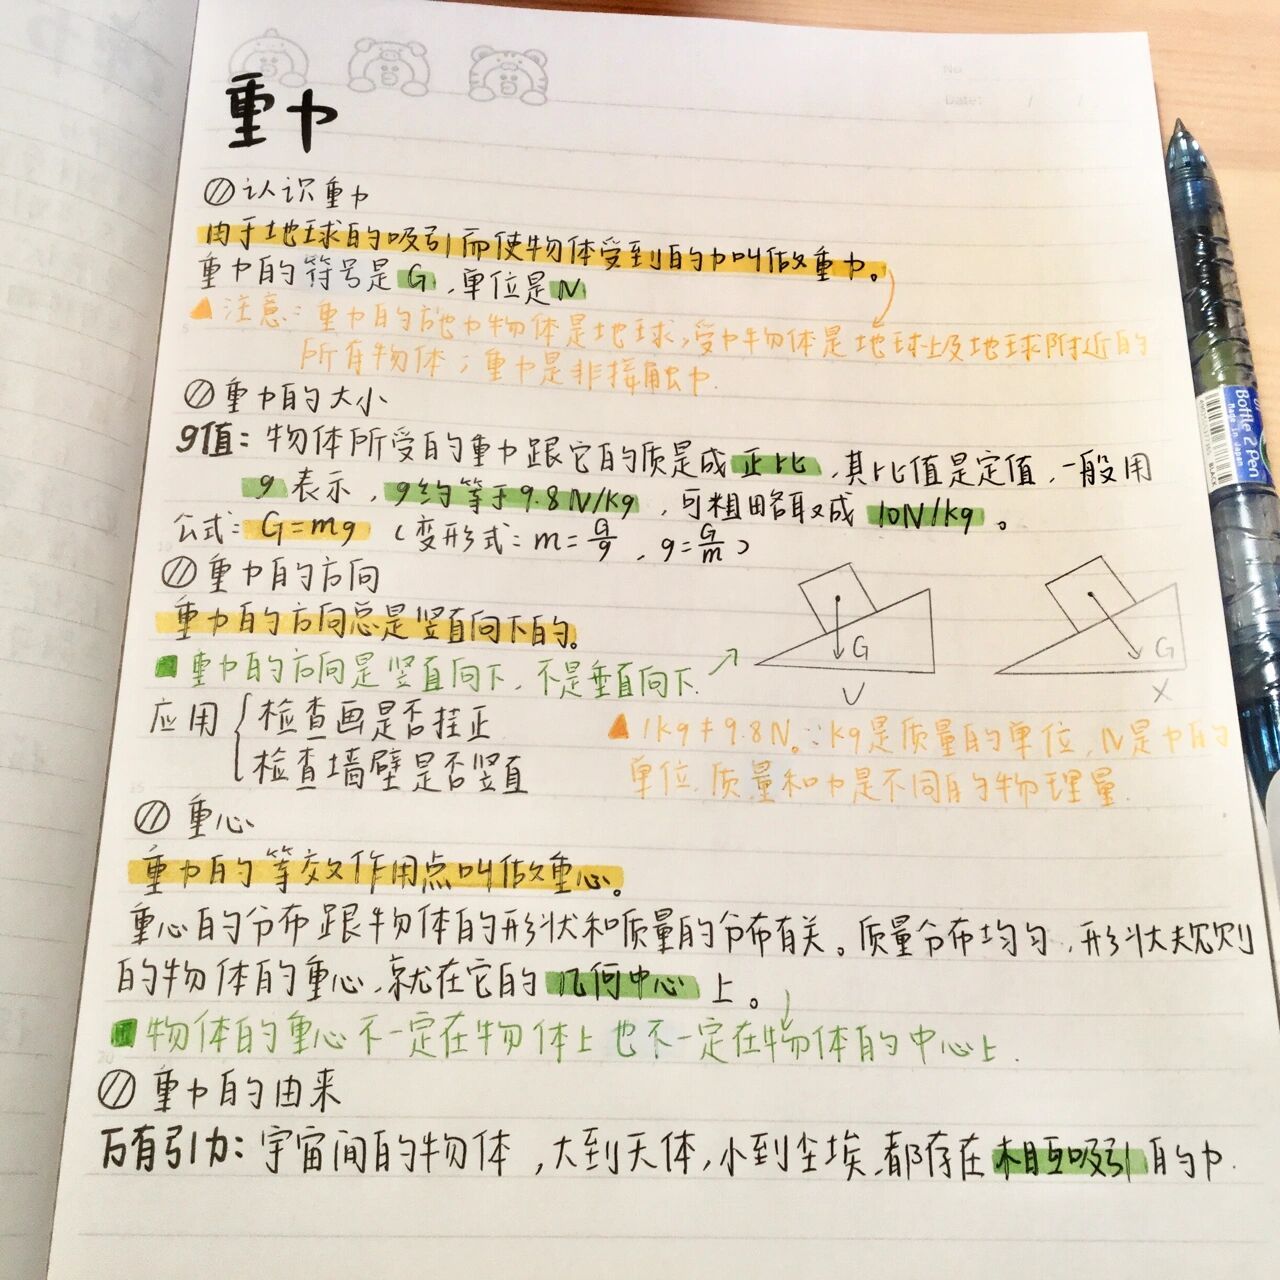 No.
Date: / /
重力
认识重力
由于地球的吸引而使物体受到的力叫做重力。
重力的符号是G,单位是N
注意:重力的施力物体是地球,受力物体是地球上及地球附近的
所有物体;重力是非接触力.
重力的大小
g值:物体所受的重力跟它的质是成正比,其比值是定值,一般用
g表示,g约等于9.8N/kg,可粗略取成10N/kg。
公式:G=mg(变形式:m=G/g,g=G/m)
重力的方向
重力的方向总是竖直向下的。
重力的方向是竖直向下,不是垂直向下.
G
√
G
×
应用
检查画是否挂正
检查墙壁是否竖直
1kg≠9.8N。∵kg是质量的单位,N是力的
单位.质量和力是不同的物理量.
重心
重力的等效作用点叫做重心。
重心的分布跟物体的形状和质量的分布有关。质量分布均匀,形状规则
的物体的重心,就在它的几何中心上。
物体的重心不一定在物体上也不一定在物体的中心上.
重力的由来
万有引力:宇宙间的物体,大到天体,小到尘埃,都存在相互吸引的力.
Bottle 2 Pen
Made in Japan
BLACK